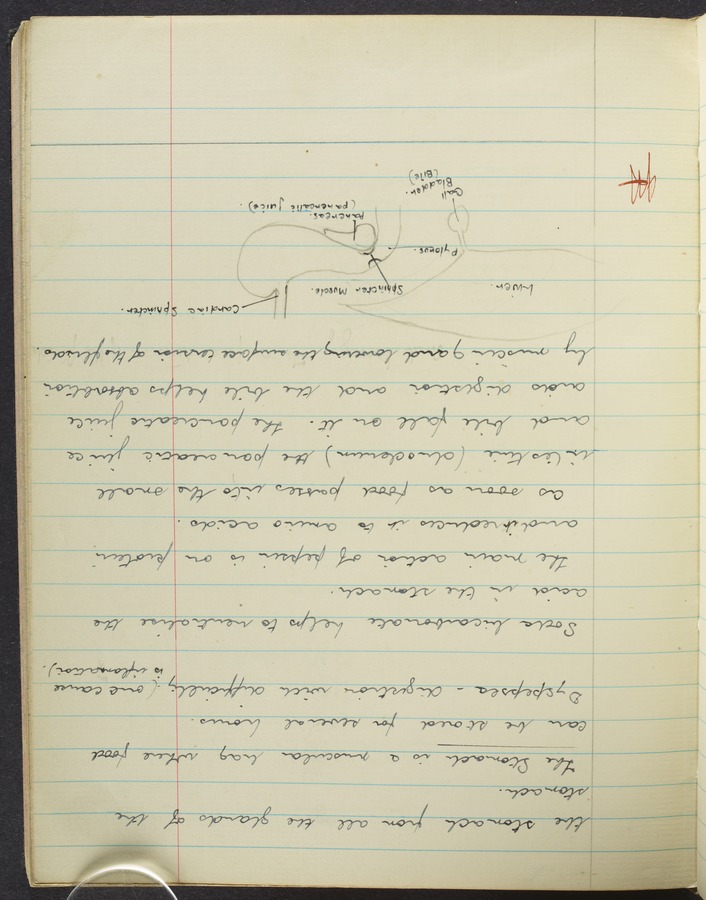 the stomach from all the glands of the
stomach.
The Stomach is a muscular bag where food
can be stored for several hours.
Dyspepsea - digestion with difficulty (one cause
is inflamation).
Soda bicarbonate helps to neutralise the
acid in the stomach.
The main action of pepsin is on protein
and it reduces it to amino acids.
As soon as food passes into the small
intestine (duodenum) the pancreatic juice
and bile fall on it. The pancreatic juice
aids digestion and the bile helps absorbtion
by mixing and lowering the surface tension of the fluids.
Cardiac Sphincter.
Liver.
Sphincter Muscle.
Pylorus.
Pancreas.
(pancreatic juice).
Gall
Bladder.
(Bile)